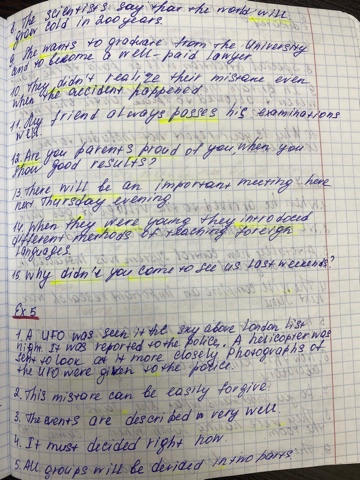 8. The scientists say that the world will
grow cold in 200 years.
9. She wants to graduate from the University
and to become a well-paid lawyer.
10. They didn't realize their mistake even
when the accident happened
11. My friend always passes his examinations
well.
12. Are you parents proud of you when you
show good results?
13. There will be an important meeting here
next Thursday evening
14. When they were young they introduced
different methods of teaching foreign
languages
15. Why didn't you come to see us last weekends?
Ex 5
1. A UFO was seen it the sky above London list
night. It was reported to the police. A helicopter was
sent to look at it more closely photographs of
the UFO were given to the police.
2. This mistake can be easily forgive.
3. The events are described in very well
4. It must decided right now.
5. All groups will be devided in two parts